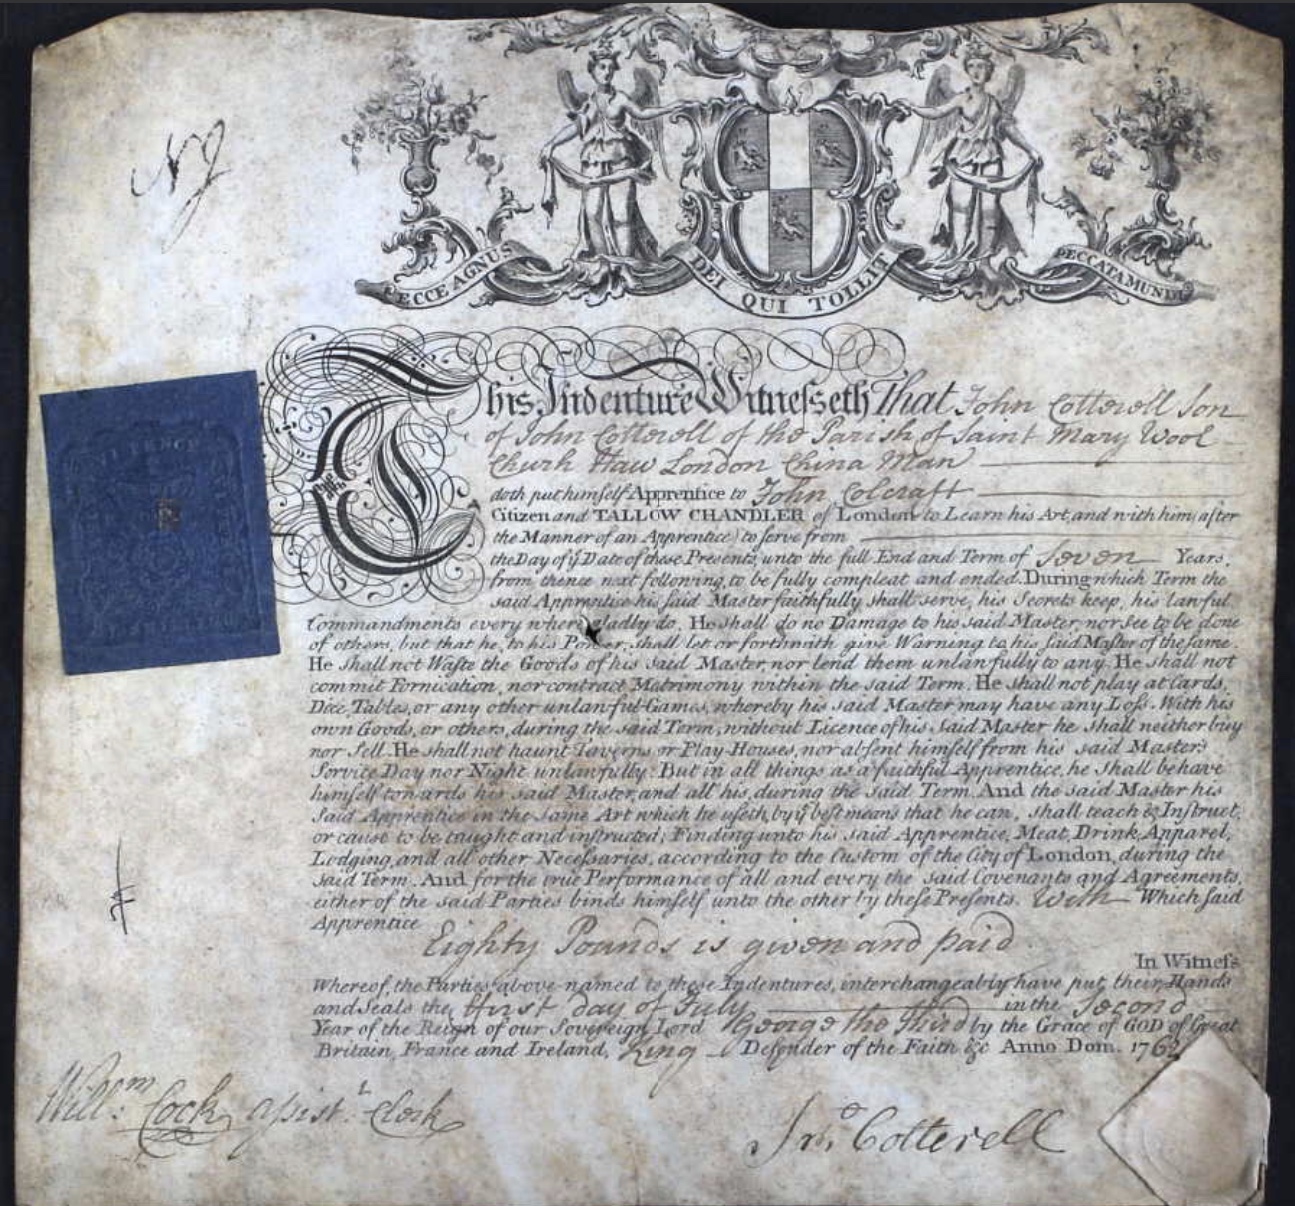 ECCE AGNUS DEI QUI TOLLIT PECCATA MUNDI
This Indenture Witnesseth That John Cotterell Son
of John Cotterell of the Parish of Saint Mary Wool
Church Haw London China Man
doth put himself Apprentice to John Colcraft
Citizen and TALLOW CHANDLER of London to Learn his Art, and with him (after
the Manner of an Apprentice) to serve from
the Day of ye Date of these Presents, unto the full End and Term of Seven Years,
from thence next following, to be fully compleat and ended. During which Term the
said Apprentice his said Master faithfully shall serve, his Secrets keep, his lawful
Commandments every where gladly do. He shall do no Damage to his said Master, nor see to be done
of others, but that he, to his Power, shall let or forthwith give Warning to his said Master of the same.
He shall not Waste the Goods of his said Master, nor lend them unlawfully to any. He shall not
commit Fornication, nor contract Matrimony within the said Term. He shall not play at Cards,
Dice, Tables, or any other unlawful Games, whereby his said Master may have any Loss. With his
own Goods, or others, during the said Term, without Licence of his said Master he shall neither buy
nor Sell. He shall not haunt Taverns or Play-Houses, nor absent himself from his said Master's
Service Day nor Night unlawfully: But in all things as a faithful Apprentice, he shall behave
himself towards his said Master, and all his, during the said Term. And the said Master his
said Apprentice in the same Art which he useth, by ye best means that he can, shall teach & Instruct,
or cause to be taught and instructed; Finding unto his said Apprentice, Meat, Drink, Apparel,
Lodging, and all other Necessaries, according to the Custom of the City of London, during the
said Term. And for the true Performance of all and every the said Covenants and Agreements,
either of the said Parties binds himself unto the other by these Presents. With Which said
Apprentice
Eighty Pounds is given and paid
In Witness
Whereof, the Parties above-named to these Indentures, interchangeably have put their Hands
and Seals the first day of July in the Second
Year of the Reign of our Sovereign Lord George the Third by the Grace of GOD of Great
Britain, France and Ireland, King Defender of the Faith &c Anno Dom. 1762
Willm Cock assist.t Clerk
Jno Cotterell